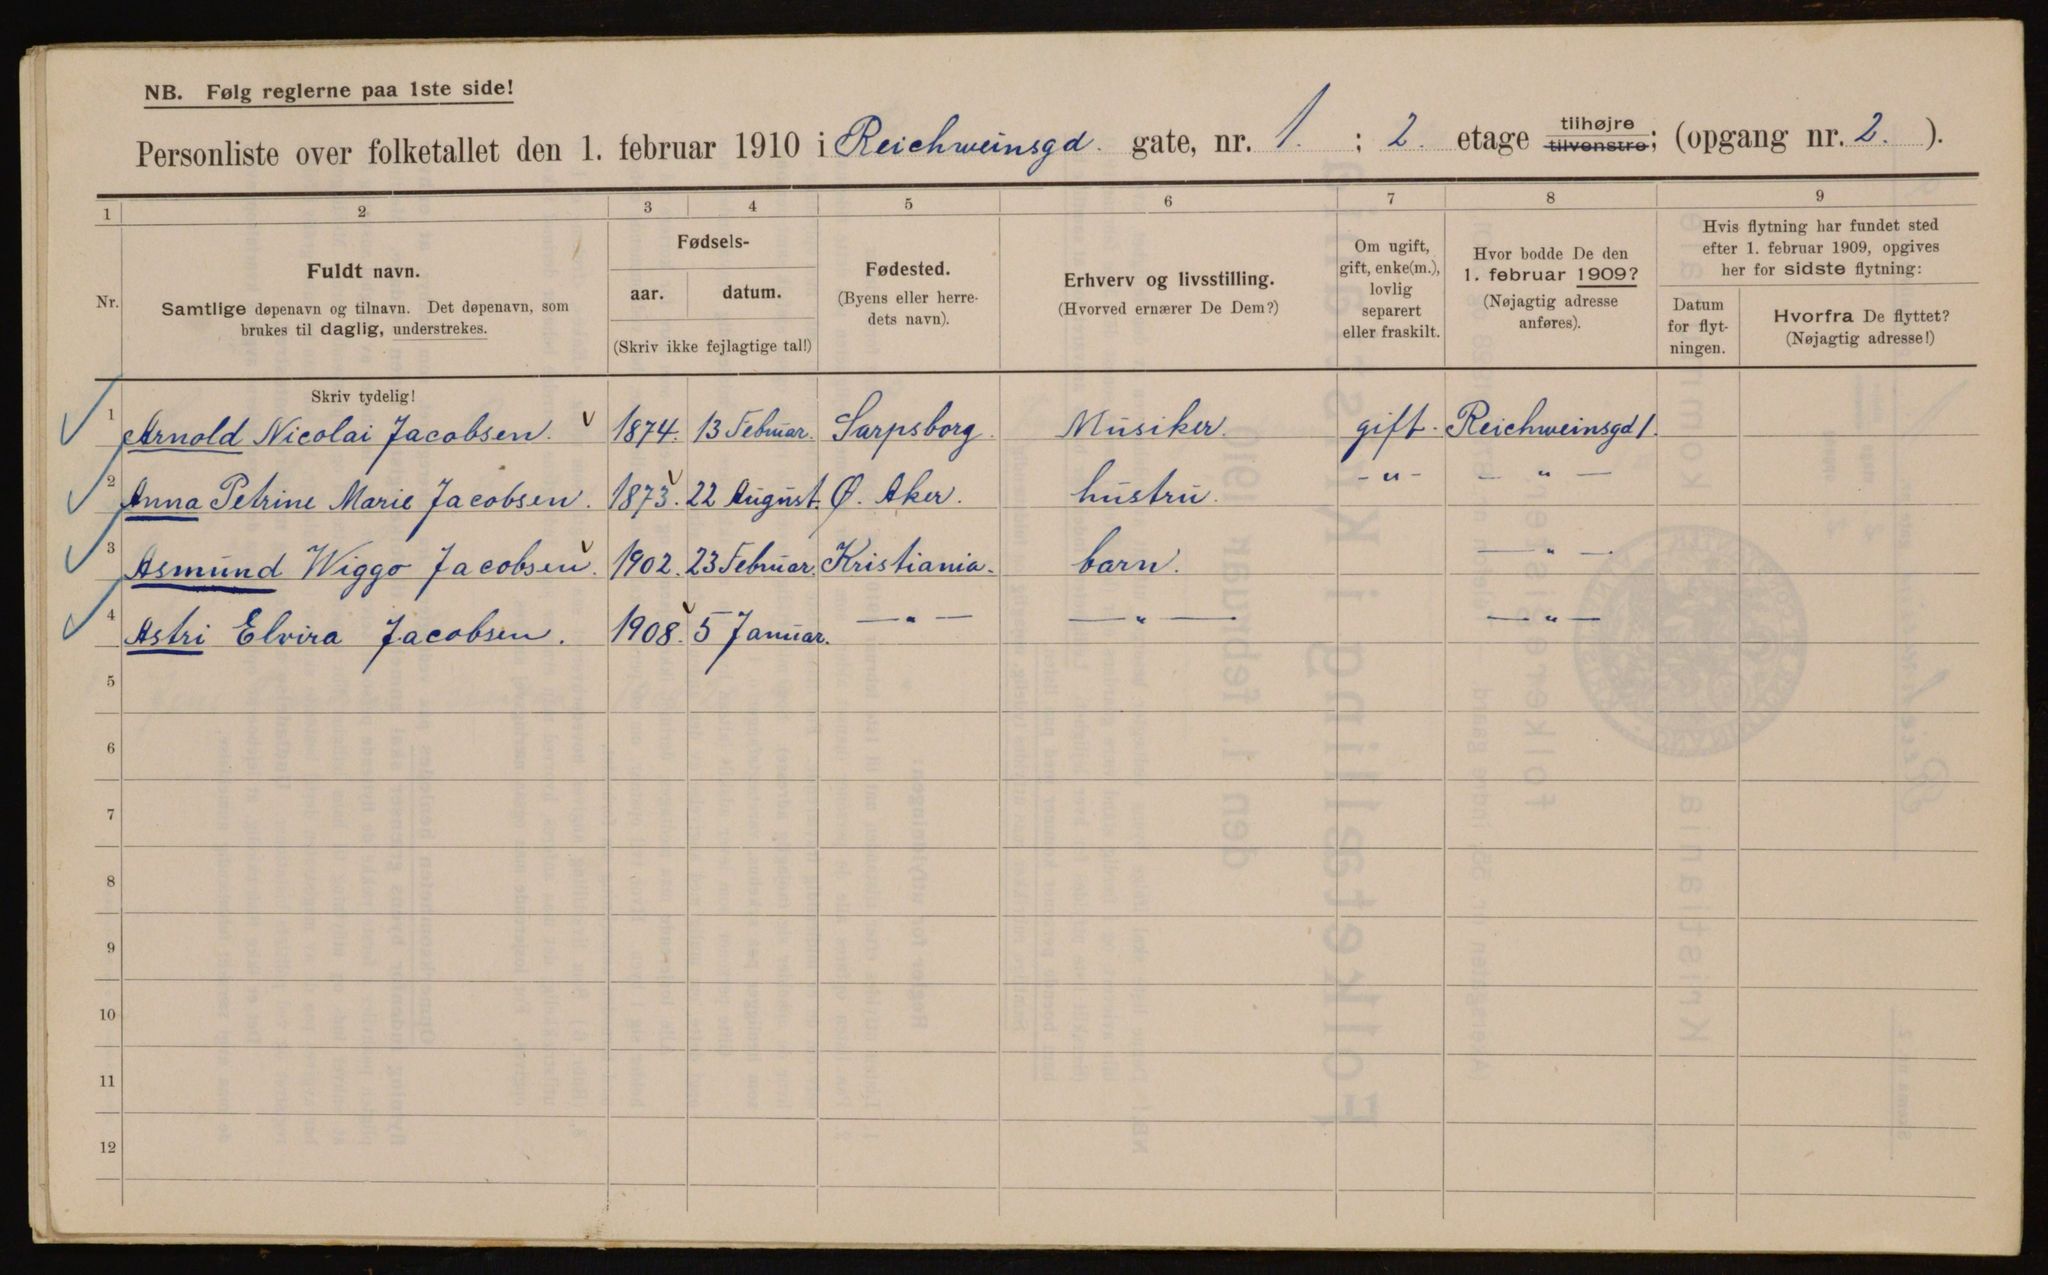 NB. Følg reglerne paa 1ste side!
Personliste over folketallet den 1. februar 1910 i Reichweinsgd. gate, nr. 1. ; 2. etage tilhøjre tilvenstre; (opgang nr. 2. ).
1 2 3 4 5 6 7 8 9
Nr.
Fuldt navn.
Samtlige døpenavn og tilnavn. Det døpenavn, som
brukes til daglig, understrekes.
Fødsels-
aar. datum.
(Skriv ikke fejlagtige tal!)
Fødested.
(Byens eller herre-
dets navn).
Erhverv og livsstilling.
(Hvorved ernærer De Dem?)
Om ugift,
gift, enke(m.),
lovlig
separert
eller fraskilt.
Hvor bodde De den
1. februar 1909?
(Nøjagtig adresse
anføres).
Hvis flytning har fundet sted
efter 1. februar 1909, opgives
her for sidste flytning:
Datum
for flyt-
ningen.
Hvorfra De flyttet?
(Nøjagtig adresse!)
Skriv tydelig!
1 Arnold Nicolai Jacobsen. 1874. 13 Februar. Sarpsborg. Musiker. gift. Reichweinsgd 1.
2 Anna Petrine Marie Jacobsen. 1873. 22 August. Ø. Aker. hustru. -"- — " —
3 Asmund Wiggo Jacobsen. 1902. 23 Februar. Kristiania. barn. — " —
4 Astri Elvira Jacobsen. 1908. 5 Januar. — " — — " — — " —
5
6
7
8
9
10
11
12